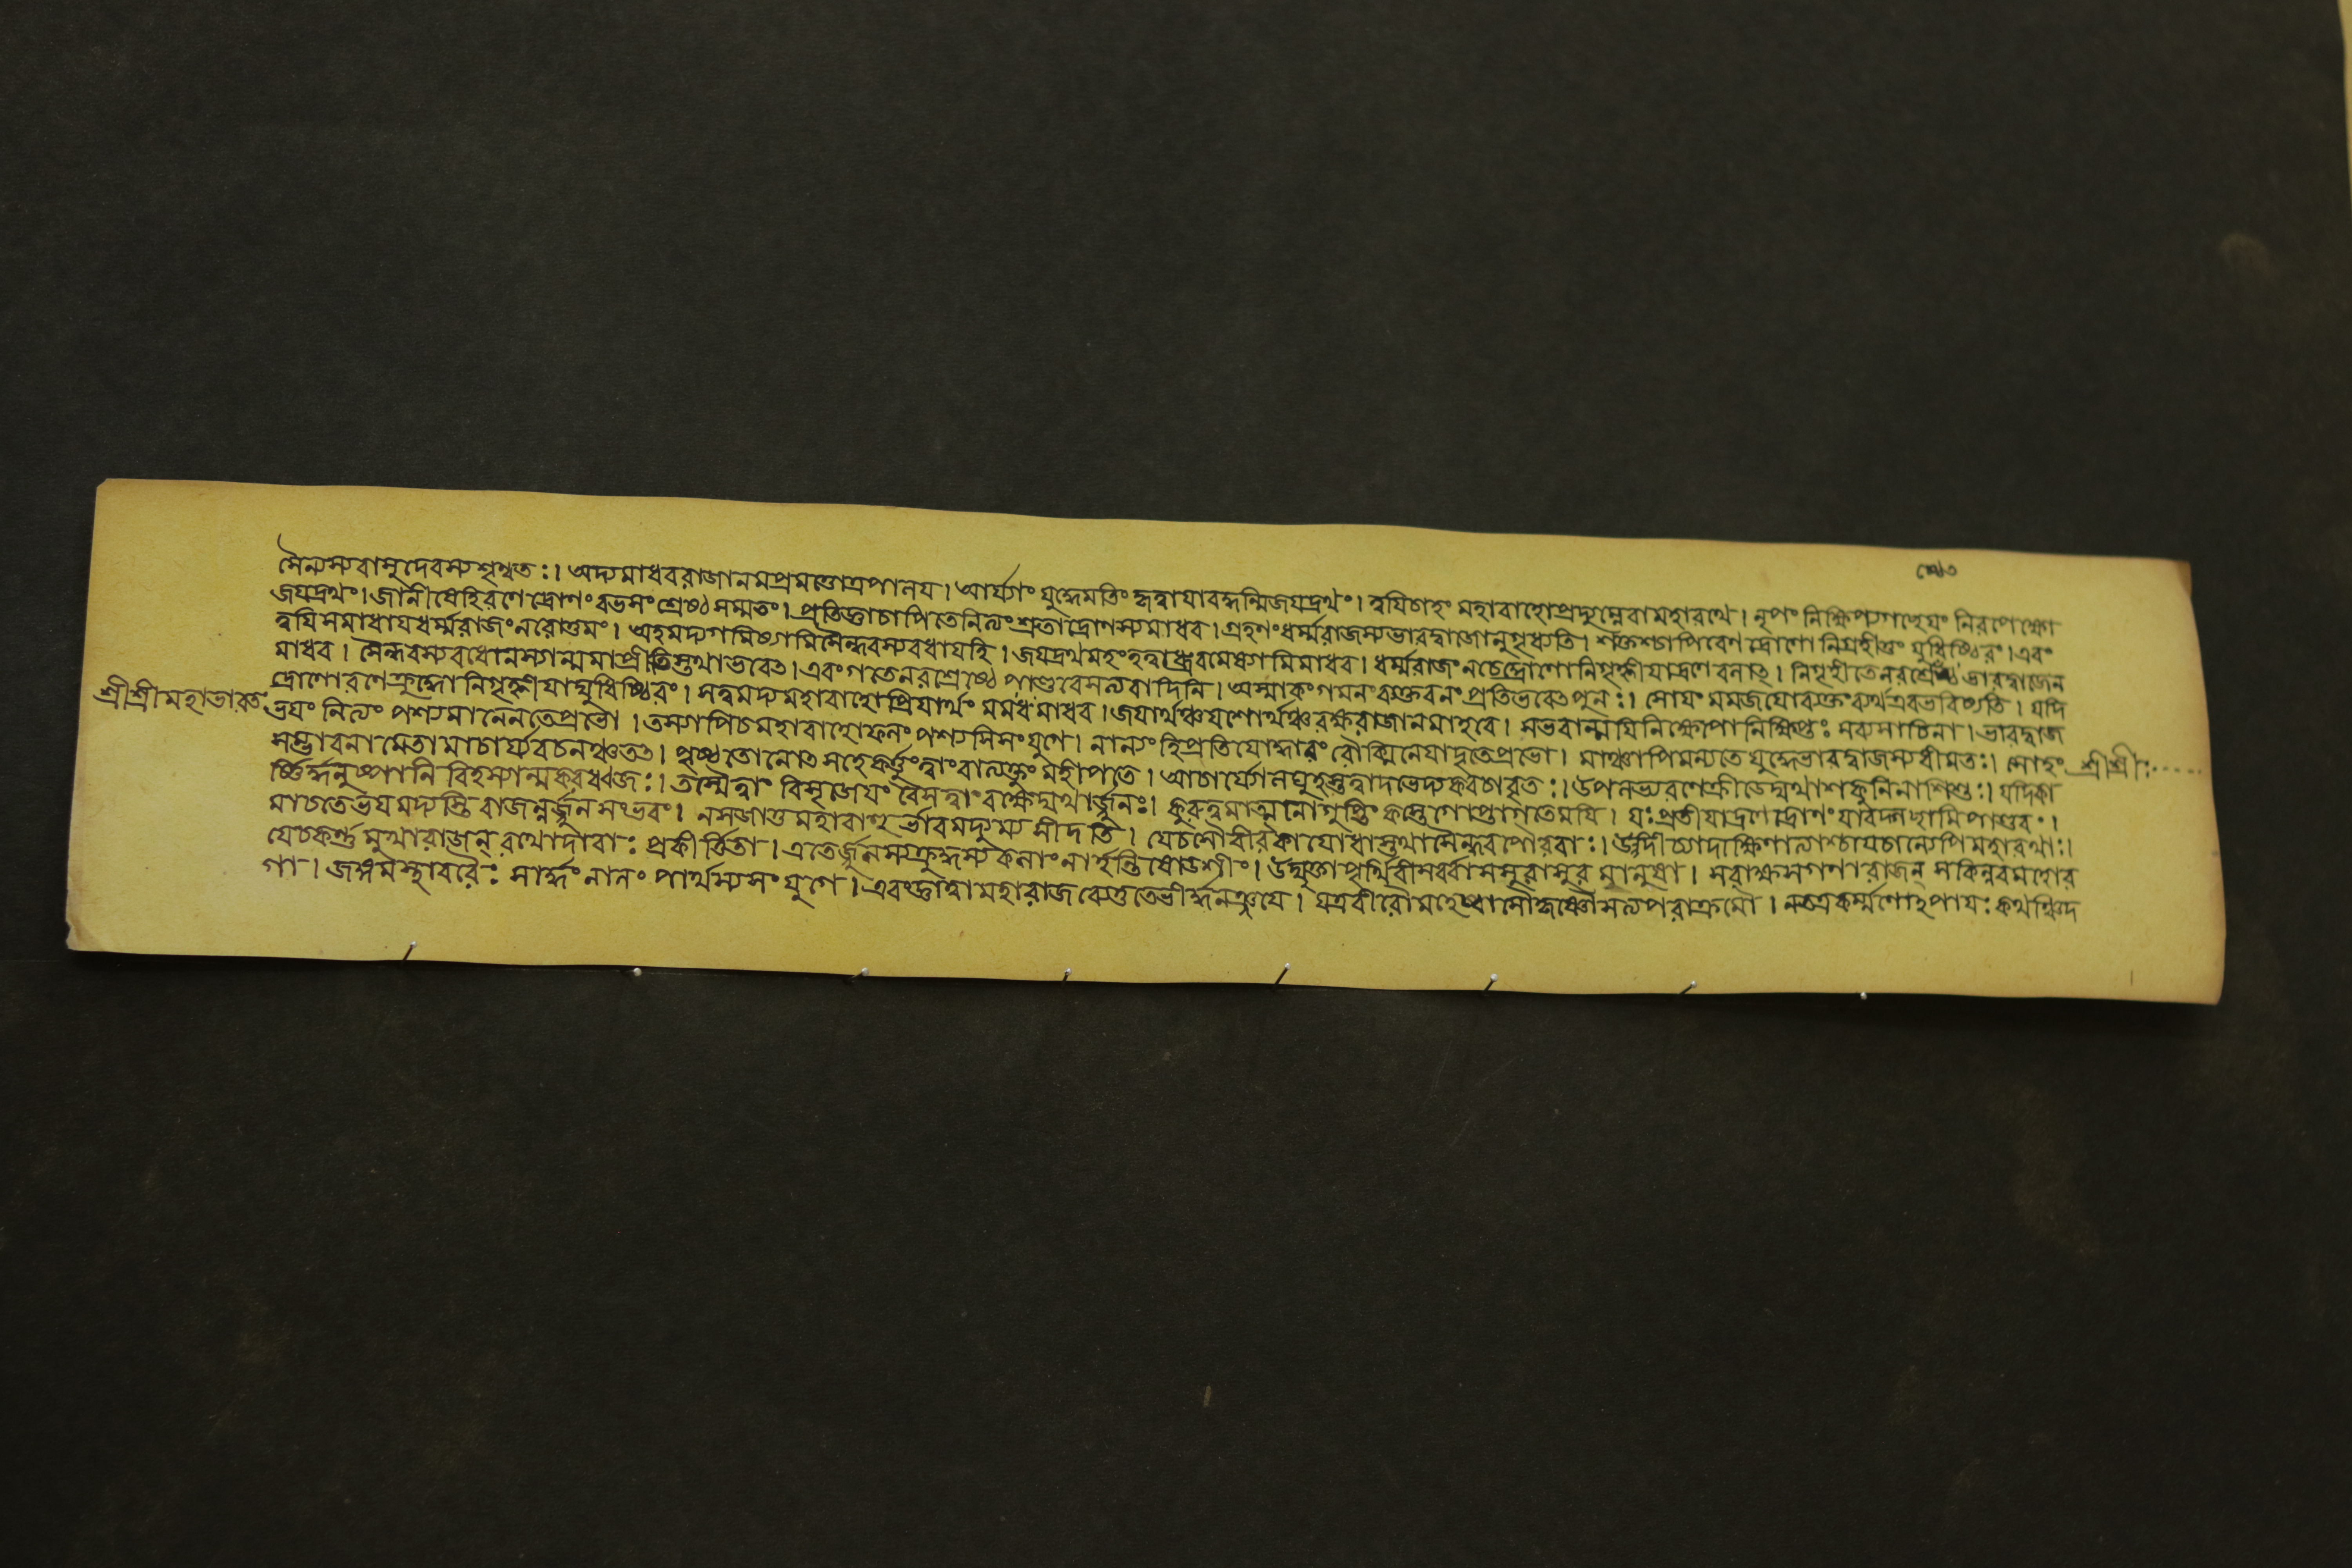 সৈন্যস্যবাসুদেবস্যশৃণ্বতঃ। অদ্যমাধবরাজানমপ্রমত্তোত্রপালয। আর্য্যাং যুদ্ধেমতিং হৃত্বাযাবদ্ধন্মিজযদ্রথং। ত্বযিচাহং মহাবাহোপ্রদ্যুম্নেবামহারথে। নৃপং নিক্ষিপ্যগচ্ছেযং নিরপেক্ষো
জযদ্রথং। জানীষেহিরণেদ্রোণং রভসংশ্রেষ্ঠসম্মতং। প্রতিজ্ঞাচাপিতেনিত্যংশ্রুতাদ্রোণস্যমাধব। গ্রহণংধর্ম্মরাজস্যভারদ্বাজোনুগৃধ্যতি। শক্তশ্চাপিরণেদ্রোণো নিগ্রহীতুং যুধিষ্ঠিরং। এবং
ত্বযিসমাধাযধর্ম্মরাজংনরোত্তমং। অহমদ্যগমিষ্যামিসৈন্ধবস্যবধাযহি। জযদ্রথমহংহত্বাধ্রুবমেষ্যামিমাধব। ধর্ম্মরাজং নচেদ্দ্রোণোনিগৃহ্ণীযাদ্রণেবলাৎ। নিগৃহীতেনরশ্রেষ্ঠে ভারদ্বাজেন
মাধব। সৈন্ধবস্যবধোনস্যান্মমাপ্রীতিস্তথাভবেৎ। এবংগতেনরশ্রেষ্ঠে পাণ্ডবেসত্যবাদিনি। অস্মাকংগমনং ব্যক্তংবনংপ্রতিভবেৎপুনঃ। সোযং মমজযোব্যক্তং ব্যর্থএবভবিষ্যতি। যদি
দ্রোণোরণেক্রুদ্ধোনিগৃহ্ণীযাদ্যুধিষ্ঠিরং। সত্বমদ্যমহাবাহোপ্রিযার্থং মমমাধব। জযার্থঞ্চযশোর্থঞ্চরক্ষরাজানমাহবে। সভবান্মযিনিক্ষেপোনিক্ষিপ্তঃ সব্যসাচিনা। ভারদ্বাজ
শ্রীশ্রীমহাভারত
ভযং নিত্যং পশ্যমানেনতেপ্রভো। তস্যাপিচমহাবাহোফলং পশ্যসিসংযুগে। নান্যং হিপ্রতিযোদ্ধারং রৌক্মিনেযাদৃতেপ্রভো। মাঞ্চাপিমন্যতেযুদ্ধেভারদ্বাজস্যধীমতঃ। সোহং
শ্রীশ্রীঃ.....
সম্ভাবনামেতামাচার্য্যবচনঞ্চতৎ। পৃষ্ঠতোনোৎসহেকর্ত্তুংত্বাংবাত্যক্তুং মহীপতে। আচার্যোলঘুহস্তত্বাদভেদ্যকবচাবৃতঃ। উপলভ্যরণেক্রীডেদ্যথাশকুনিনাশিশুঃ। যদিকা
র্ষ্ণির্দ্ধনুষ্পাণি বিহস্যান্মকরধ্বজঃ। তস্মৈত্বাং বিসৃজেযং বৈসত্বাংরক্ষেদ্যথার্জ্জুনঃ। কুরুত্বমাত্মনোগুপ্তিং কস্তেগোপ্তাগতেমযি। যঃপ্রতীযাদ্রণেদ্রোণং যাবদ্গচ্ছামিপাণ্ডবং।
মাচতেভযমদ্যাস্তি রাজন্নর্জ্জুনসংভবং। নসজাতুমহাবাহু র্ভারমদ্যম্যসীদতি। যেচসৌবীরকাযোধাস্তথাসৈন্ধবপৌরবাঃ। উদীচ্যাদাক্ষিণাত্যাশ্চযেচান্যেপিমহারথাঃ।
যেচকর্ণমুখারাজন্ রথোদারাঃ প্রকীর্ত্তিতা। এতের্জ্জুনস্যক্রুদ্ধস্য কলাংনার্হন্তিষোডশীং। উদ্যুক্তাপৃথিবীসর্ব্বাসসুরাসুর মানুষা। সরাক্ষসগণারাজন্ সকিন্নরমহোর
গা। জঙ্গমস্থাবরৈঃ সার্দ্ধং নালং পার্থস্যসংযুগে। এবংজ্ঞাত্বামহারাজব্যেতুতেভীর্দ্ধনঞ্জযে। যত্রবীরৌমহেষ্বাসৌকৃষ্ণৌসত্যপরাক্রমৌ। নতত্রকর্ম্মণোব্যাপাযঃ কথঞ্চিদ